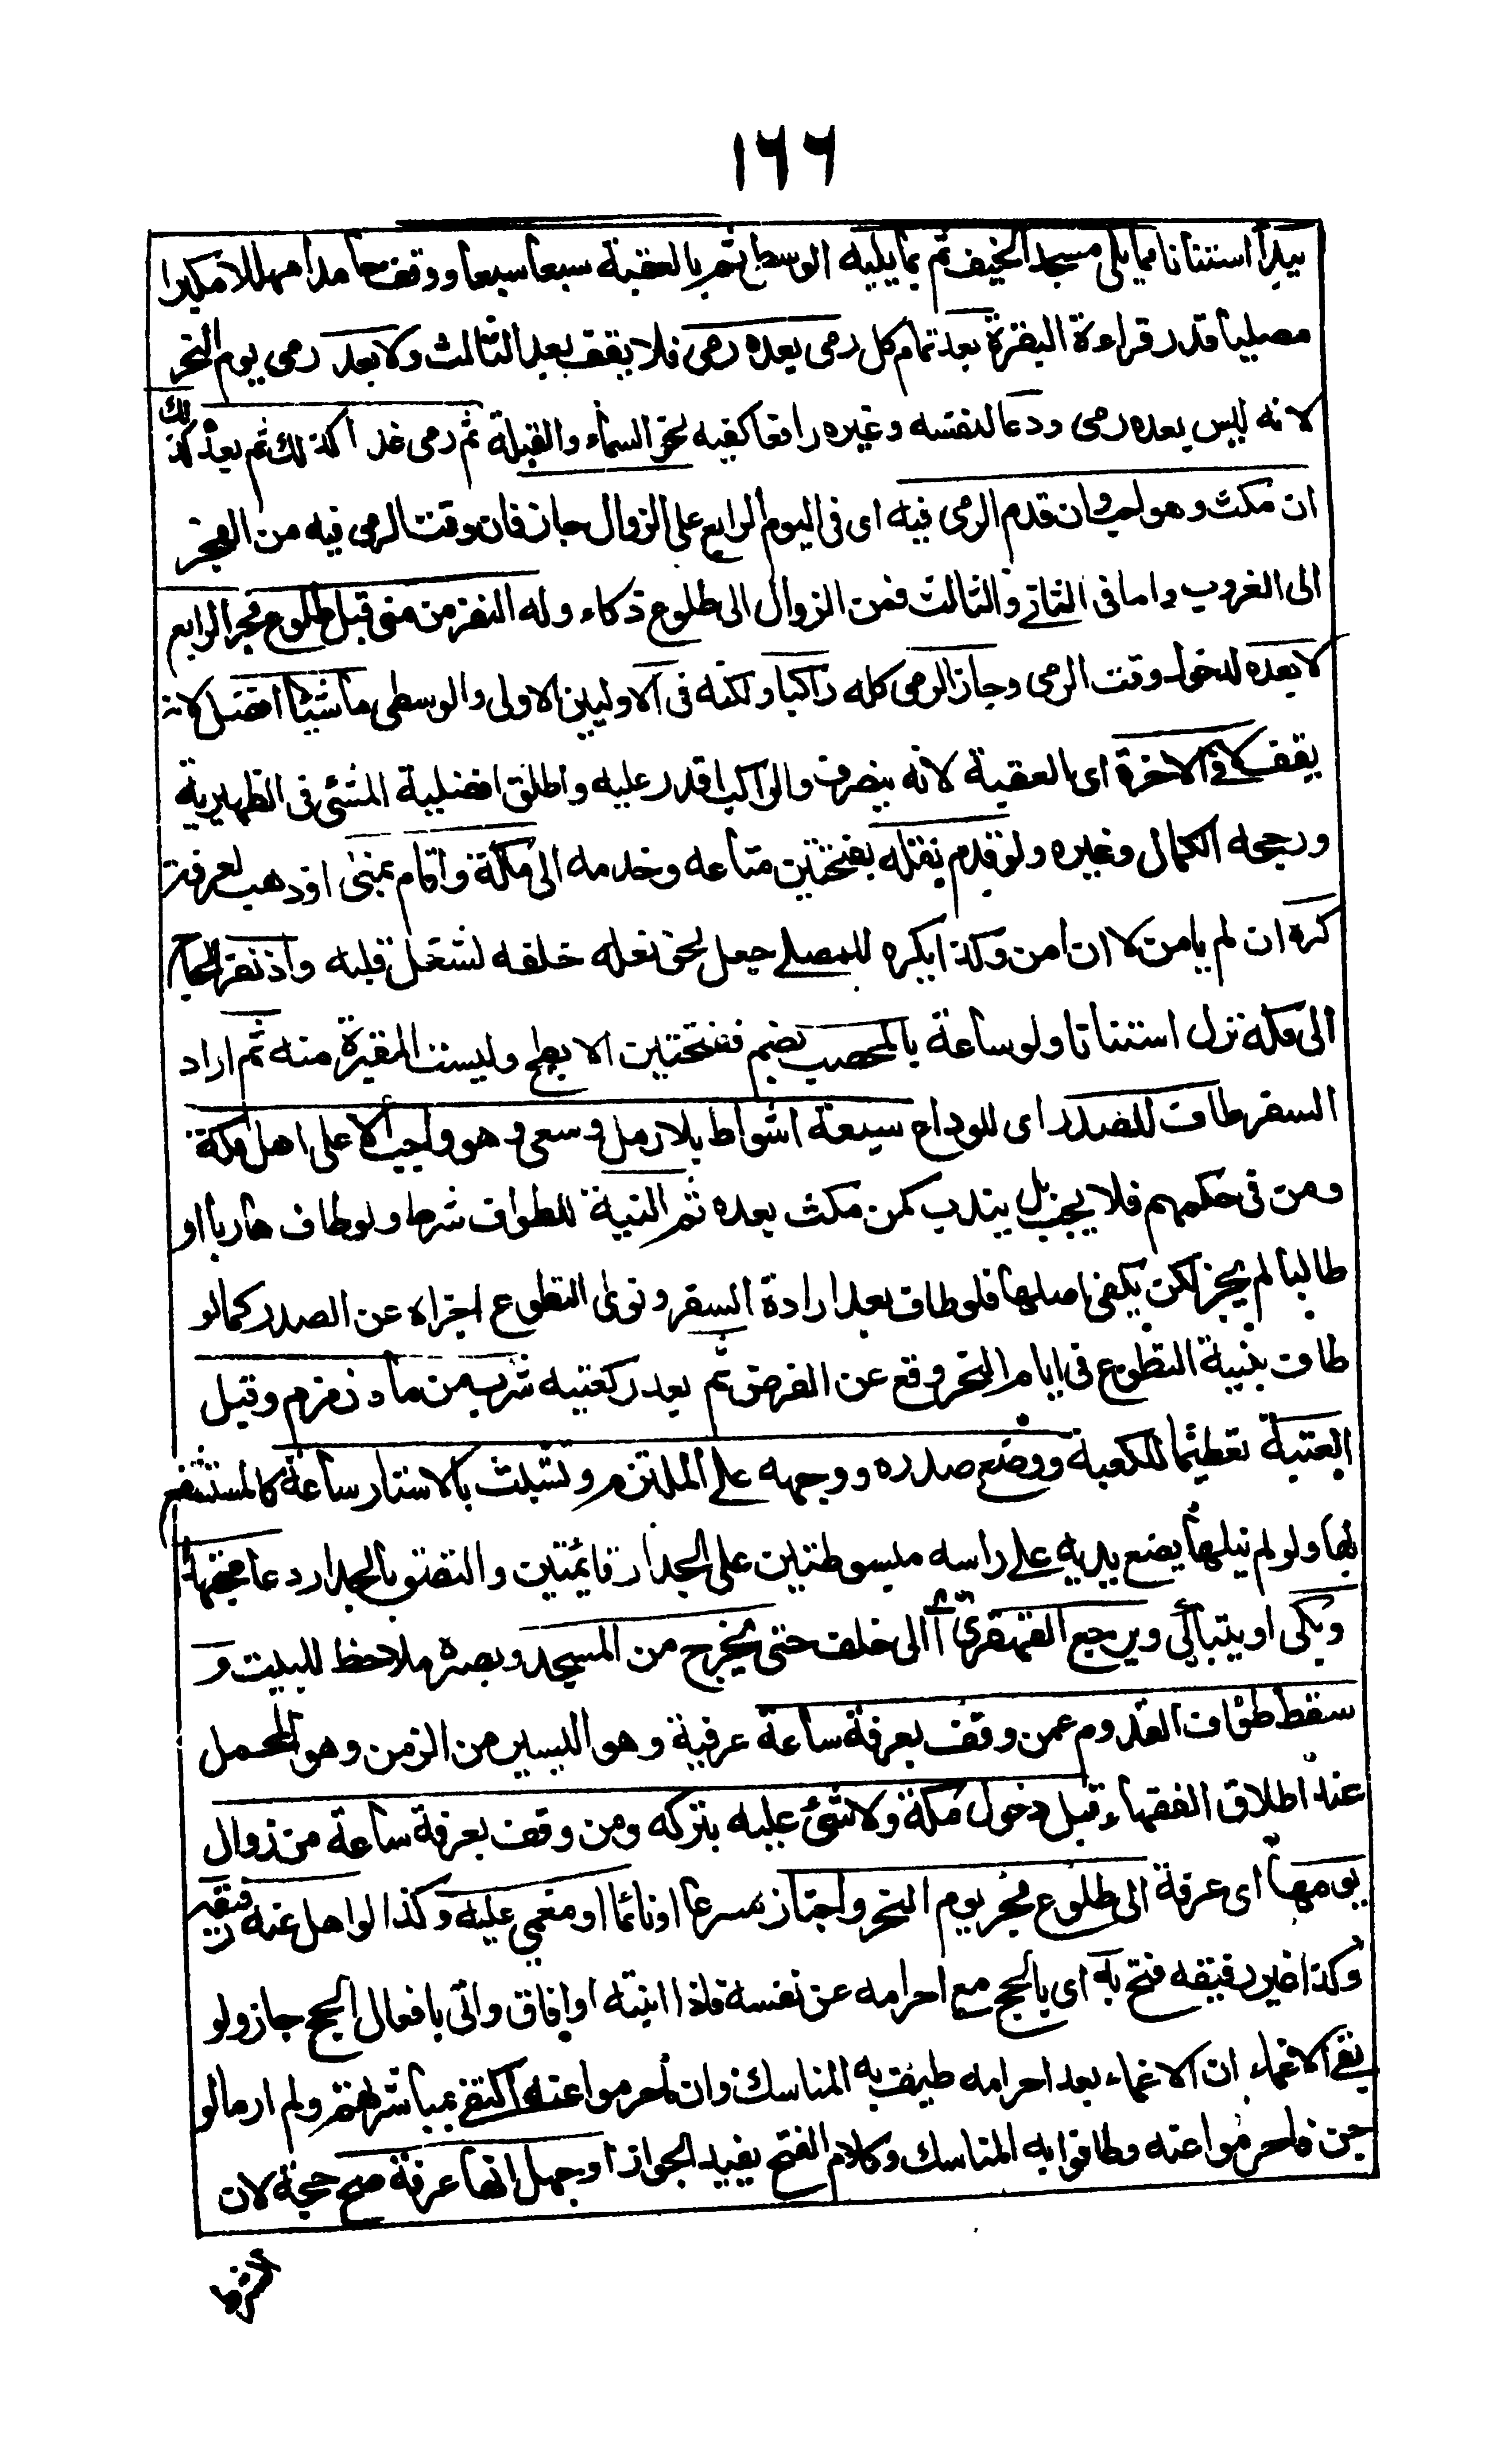 ١٦٦
يبدأ استنانا بما يلى مسجد الخيف ثم بما يليه الوسطى ثم بالعقبة سبعا سبعا ووقف حامدا مهللا مكبرا
مصليا قدر قراءة البقرة بعد تمام كل رمى بعده رمى فلا يقف بعد الثالث ولا بعد رمى يوم النحر
لانه ليس بعده رمى ودعا لنفسه وغيره رافعا كفيه نحو السماء والقبلة ثم رمى غدا كذلك ثم بعده كذلك
ان مكث وهو احب وان قدم الرمى فيه اى فى اليوم الرابع على الزوال جاز فان وقت الرمى فيه من الفجر
الى الغروب واما فى الثانى والثالث فمن الزوال الى طلوع ذكاء وله النفر من منى قبل طلوع فجر الرابع
لا بعده لدخول وقت الرمى وجاز الرمى كله راكبا ولكنه فى الاوليين الاولى والوسطى ماشيا افضل لانه
يقف لا فى الاخرة اى العقبة لانه ينصرف والراكب اقدر عليه واطلق افضلية المشئ فى الظهيرية
ورجحه الكمال وغيره ولو قدم ثقله بفتحتين متاعه وخدمه الى مكة واقام بمنى او ذهب لعرفة
كره ان لم يامن لا ان امن وكذا يكره للمصلى جعل نحو نعله خلفه لشغل قلبه واذ نفر الحاج
الى مكة نزل استنانا ولو ساعة بالمحصب بضم ففتحتين الابطح وليست المقبرة منه ثم اراد
السفر طاف للصدر اى للوداع سبعة اشواط بلا رمل وسعى وهو واجب الا على اهل مكة
ومن فى حكمهم فلا يجب بل يندب كمن مكث بعده ثم النية للطواف شرط ولو طاف هاربا او
طالبا لم يجز لكن يكفى اصلها فلو طاف بعد ارادة السفر ونوى التطوع اجزاه عن الصدر كما لو
طاف بنية التطوع فى ايام النحر وقع عن الفرض ثم بعد ركعتيه شرب من ماء زمزم وقبل
العتبة تعظيما للكعبة ووضع صدره ووجهه على الملتزم وتشبث بالاستار ساعة كالمستشفع
بها ولو لم ينلها يضع يديه على راسه مبسوطتين على الجدار قائمتين والتصق بالجدار ودعا مجتهدا
ويبكى او يتباكى ويرجع القهقرى اى الى خلف حتى يخرج من المسجد وبصره ملاحظ للبيت و
سقط طواف القدوم عمن وقف بعرفة ساعة عرفية وهو اليسير من الزمن وهو المحمل
عند اطلاق الفقهاء قبل دخول مكة ولا شئ عليه بتركه ومن وقف بعرفة ساعة من زوال
يومها اى عرفة الى طلوع فجر يوم النحر واجتاز مسرعا او نائما او مغمى عليه وكذا لو اهل عنه رفيقه
وكذا غير رفيقه فتح به اى بالحج مع احرامه عن نفسه فاذا انتبه او افاق واتى بافعال الحج جاز ولو
بقى الاغماء ان الاغماء بعد احرامه طيف به المناسك وان احرموا عنه اكتفى بمباشرتهم ولم ار ما لو
جن فاحرموا عنه وطافوا به المناسك وكلام الفتح يفيد الجواز او جهل انها عرفة صح حجة لان